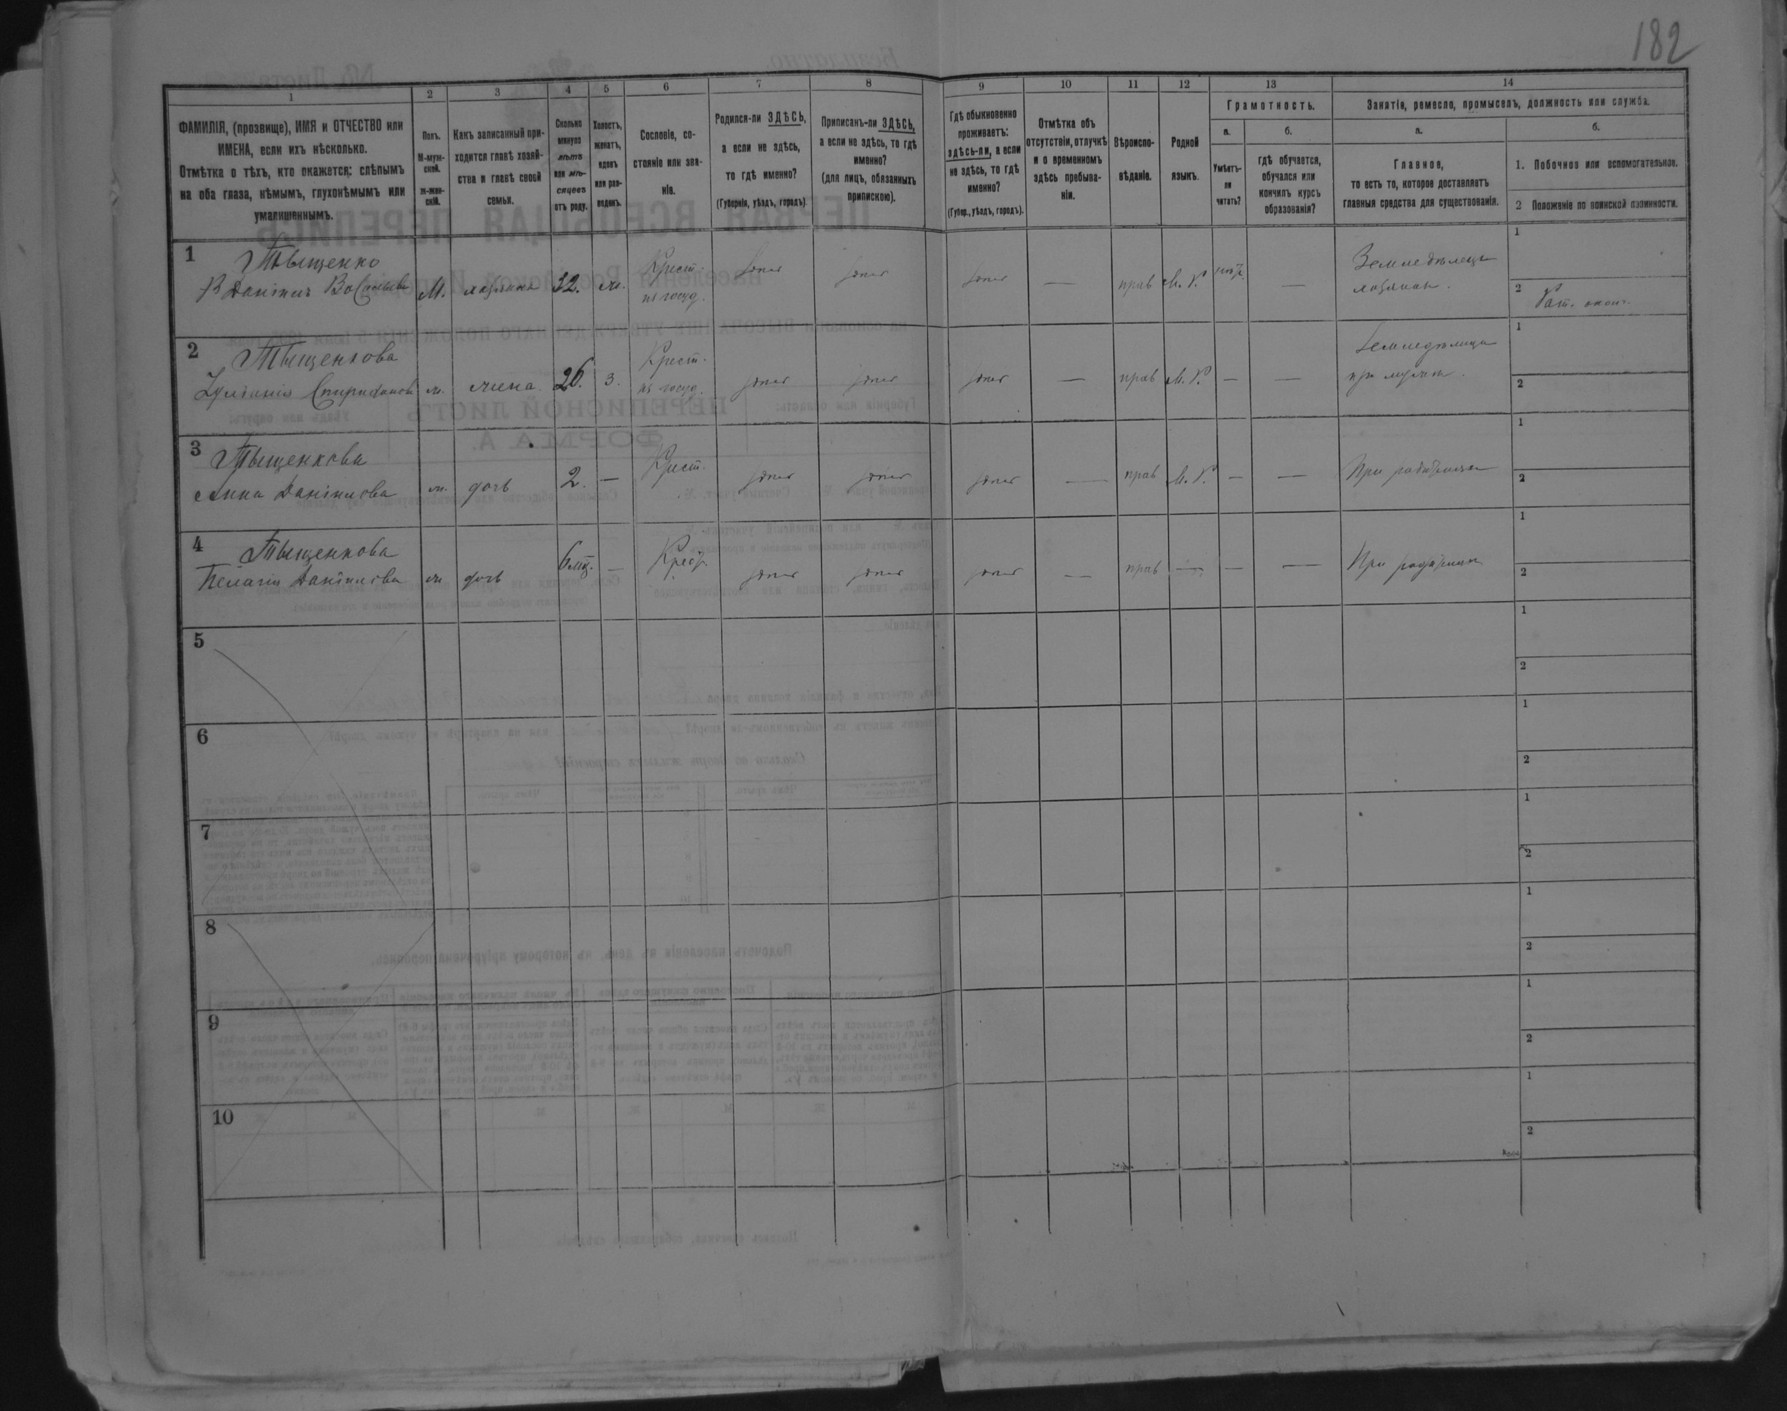 182
1
2
3
4
5
6
7
8
9
10
11
12
13
14
ФАМИЛІЯ, (прозвище), ИМЯ и ОТЧЕСТВО или
ИМЕНА, если ихъ нѣсколько.
Отмѣтка о тѣхъ, кто окажется: слѣпымъ
на оба глаза, нѣмымъ, глухонѣмымъ или
умалишеннымъ.
Полъ.
М-муж-
ской.
Ж-жен-
скій.
Какъ записанный при-
ходится главѣ хозяй-
ства и главѣ своей
семьи.
Сколько
минуло
лѣтъ
или мѣ-
сяцевъ
отъ роду.
Холостъ,
женатъ,
вдовъ
или раз-
веденъ.
Сословіе, со-
стояніе или зва-
ніе.
Родился-ли ЗДѢСЬ,
а если не здѣсь,
то гдѣ именно?
(Губернія, уѣздъ, городъ)
Приписанъ-ли ЗДѢСЬ,
а если не здѣсь, то гдѣ
именно?
(для лицъ, обязанныхъ
припискою).
Гдѣ обыкновенно
проживаетъ:
здѣсь-ли, а если
не здѣсь, то гдѣ
именно?
(Губер., уѣздъ, городъ).
Отмѣтка объ
отсутствіи, отлучкѣ
и о временномъ
здѣсь пребыва-
ніи.
Вѣроиспо-
вѣданіе.
Родной
языкъ.
Грамотность.
а.
Умѣетъ-
ли
читать?
б.
гдѣ обучается,
обучался или
кончилъ курсъ
образованія?
Занятіе, ремесло, промыселъ, должность или служба.
а.
Главное,
то есть то, которое доставляетъ
главныя средства для существованія.
б.
1. Побочное или вспомогательное.
2 Положеніе по воинской повинности.
1
Тыщенко
М. хозяинъ 32. ж. Крест. здѣсь здѣсь здѣсь прав М. Р. нѣтъ —
Земледѣлецъ
хозяинъ.
1
2
2
Тыщенкова
ж. жена 26. з. Крест. здѣсь здѣсь здѣсь — прав М. Р. — —
при мужѣ.
1
2
3
Тыщенкова
Анна Данилова ж. дочь 2. — Крест. здѣсь здѣсь здѣсь — прав М. Р. — — При родителяхъ
1
2
4
Тыщенкова
Пелагія Данилова ж дочь 6 мѣс. — Крест. здѣсь здѣсь здѣсь — прав — — — При родителяхъ
1
2
5
1
2
6
1
2
7
1
2
8
1
2
9
1
2
10
1
2